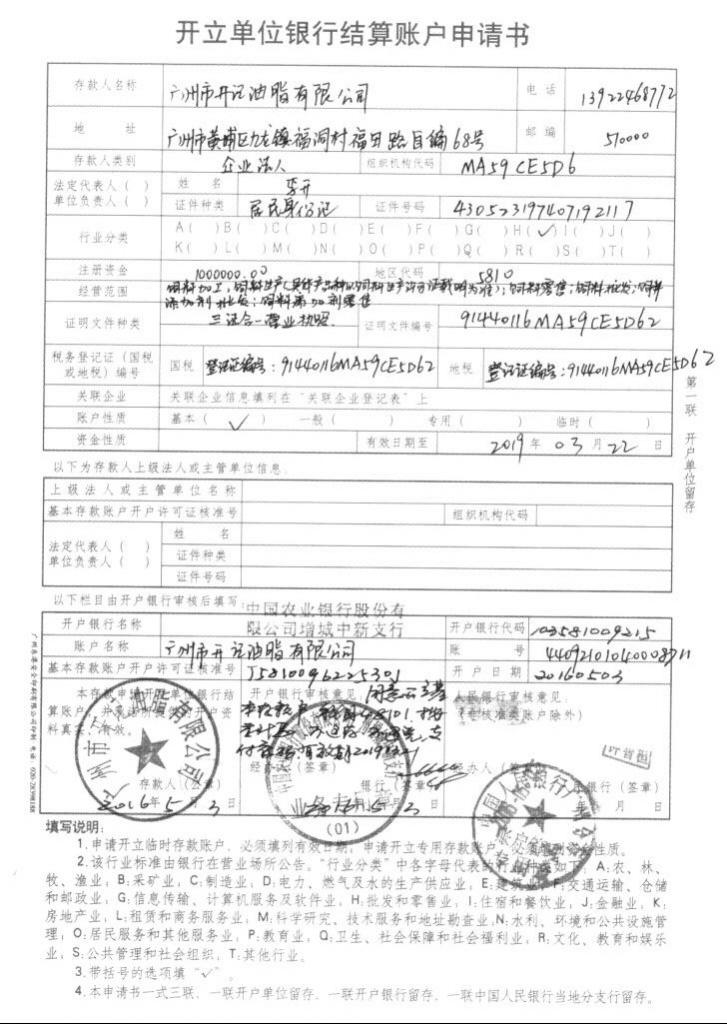 开立单位银行结算账户申请书
存款人名称 广州市开记油脂有限公司 电话 13922468772
地址 广州市黄埔区九龙镇福洞村福田路自编68号 邮编 510000
存款人类别 企业法人 组织机构代码 MA59CE5D6
法定代表人（ ） 单位负责人（ ） 姓名 李开
证件种类 居民身份证 证件号码 430523197407192117
行业分类 A( )B( )C( )D( )E( )F( )G( )H(✓)I( )J( )
K( )L( )M( )N( )O( )P( )Q( )R( )S( )T( )
注册资金 1000000.00 地区代码 5810
经营范围 饲料加工；饲料生产（具体产品种以饲料生产许可证载明为准）；饲料零售；饲料批发；饲料
添加剂批发；饲料添加剂零售
证明文件种类 三证合一营业执照 证明文件编号 91440116MA59CE5D62
税务登记证（国税或地税）编号 国税 登记证编号：91440116MA59CE5D62 地税 登记证编号：91440116MA59CE5D62
关联企业 关联企业信息填列在“关联企业登记表”上
账户性质 基本（✓） 一般（ ） 专用（ ） 临时（ ）
资金性质 有效日期至 2019年03月22日
第一联 开户单位留存
以下为存款人上级法人或主管单位信息：
上级法人或主管单位名称
基本存款账户开户许可证核准号 组织机构代码
法定代表人（ ） 单位负责人（ ） 姓名
证件种类
证件号码
以下栏目由开户银行审核后填写：
开户银行名称 中国农业银行股份有限公司增城中新支行 开户银行代码 103581009215
账户名称 广州市开记油脂有限公司 账号 44092101040008711
基本存款账户开户许可证核准号 J5810096225301 开户日期 20160503
本存款人申请开立单位银行结算账户，并承诺所提供的开户资料真实、有效。
开户银行审核意见：
人民银行审核意见：
（非核准类账户除外）
存款人（公章）
2016年5月3日
经办人（签章）
银行（签章）
经办人（签章）
人民银行（签章）
年 月 日
业务专用章
(01)
填写说明：
1.申请开立临时存款账户，必须填列有效日期；申请开立专用存款账户，必须填列资金性质。
2.该行业标准由银行在营业场所公告。“行业分类”中各字母代表的行业种类如下：A:农、林、
牧、渔业；B:采矿业；C:制造业；D:电力、燃气及水的生产供应业；E:建筑业；F:交通运输、仓储
和邮政业；G:信息传输、计算机服务及软件业；H:批发和零售业；I:住宿和餐饮业；J:金融业；K:
房地产业；L:租赁和商务服务业；M:科学研究、技术服务和地址勘查业；N:水利、环境和公共设施管
理；O:居民服务和其他服务业；P:教育业；Q:卫生、社会保障和社会福利业；R:文化、教育和娱乐
业；S:公共管理和社会组织；T:其他行业。
3.带括号的选项填“✓”。
4.本申请书一式三联，一联开户单位留存，一联开户银行留存，一联中国人民银行当地分支行留存。